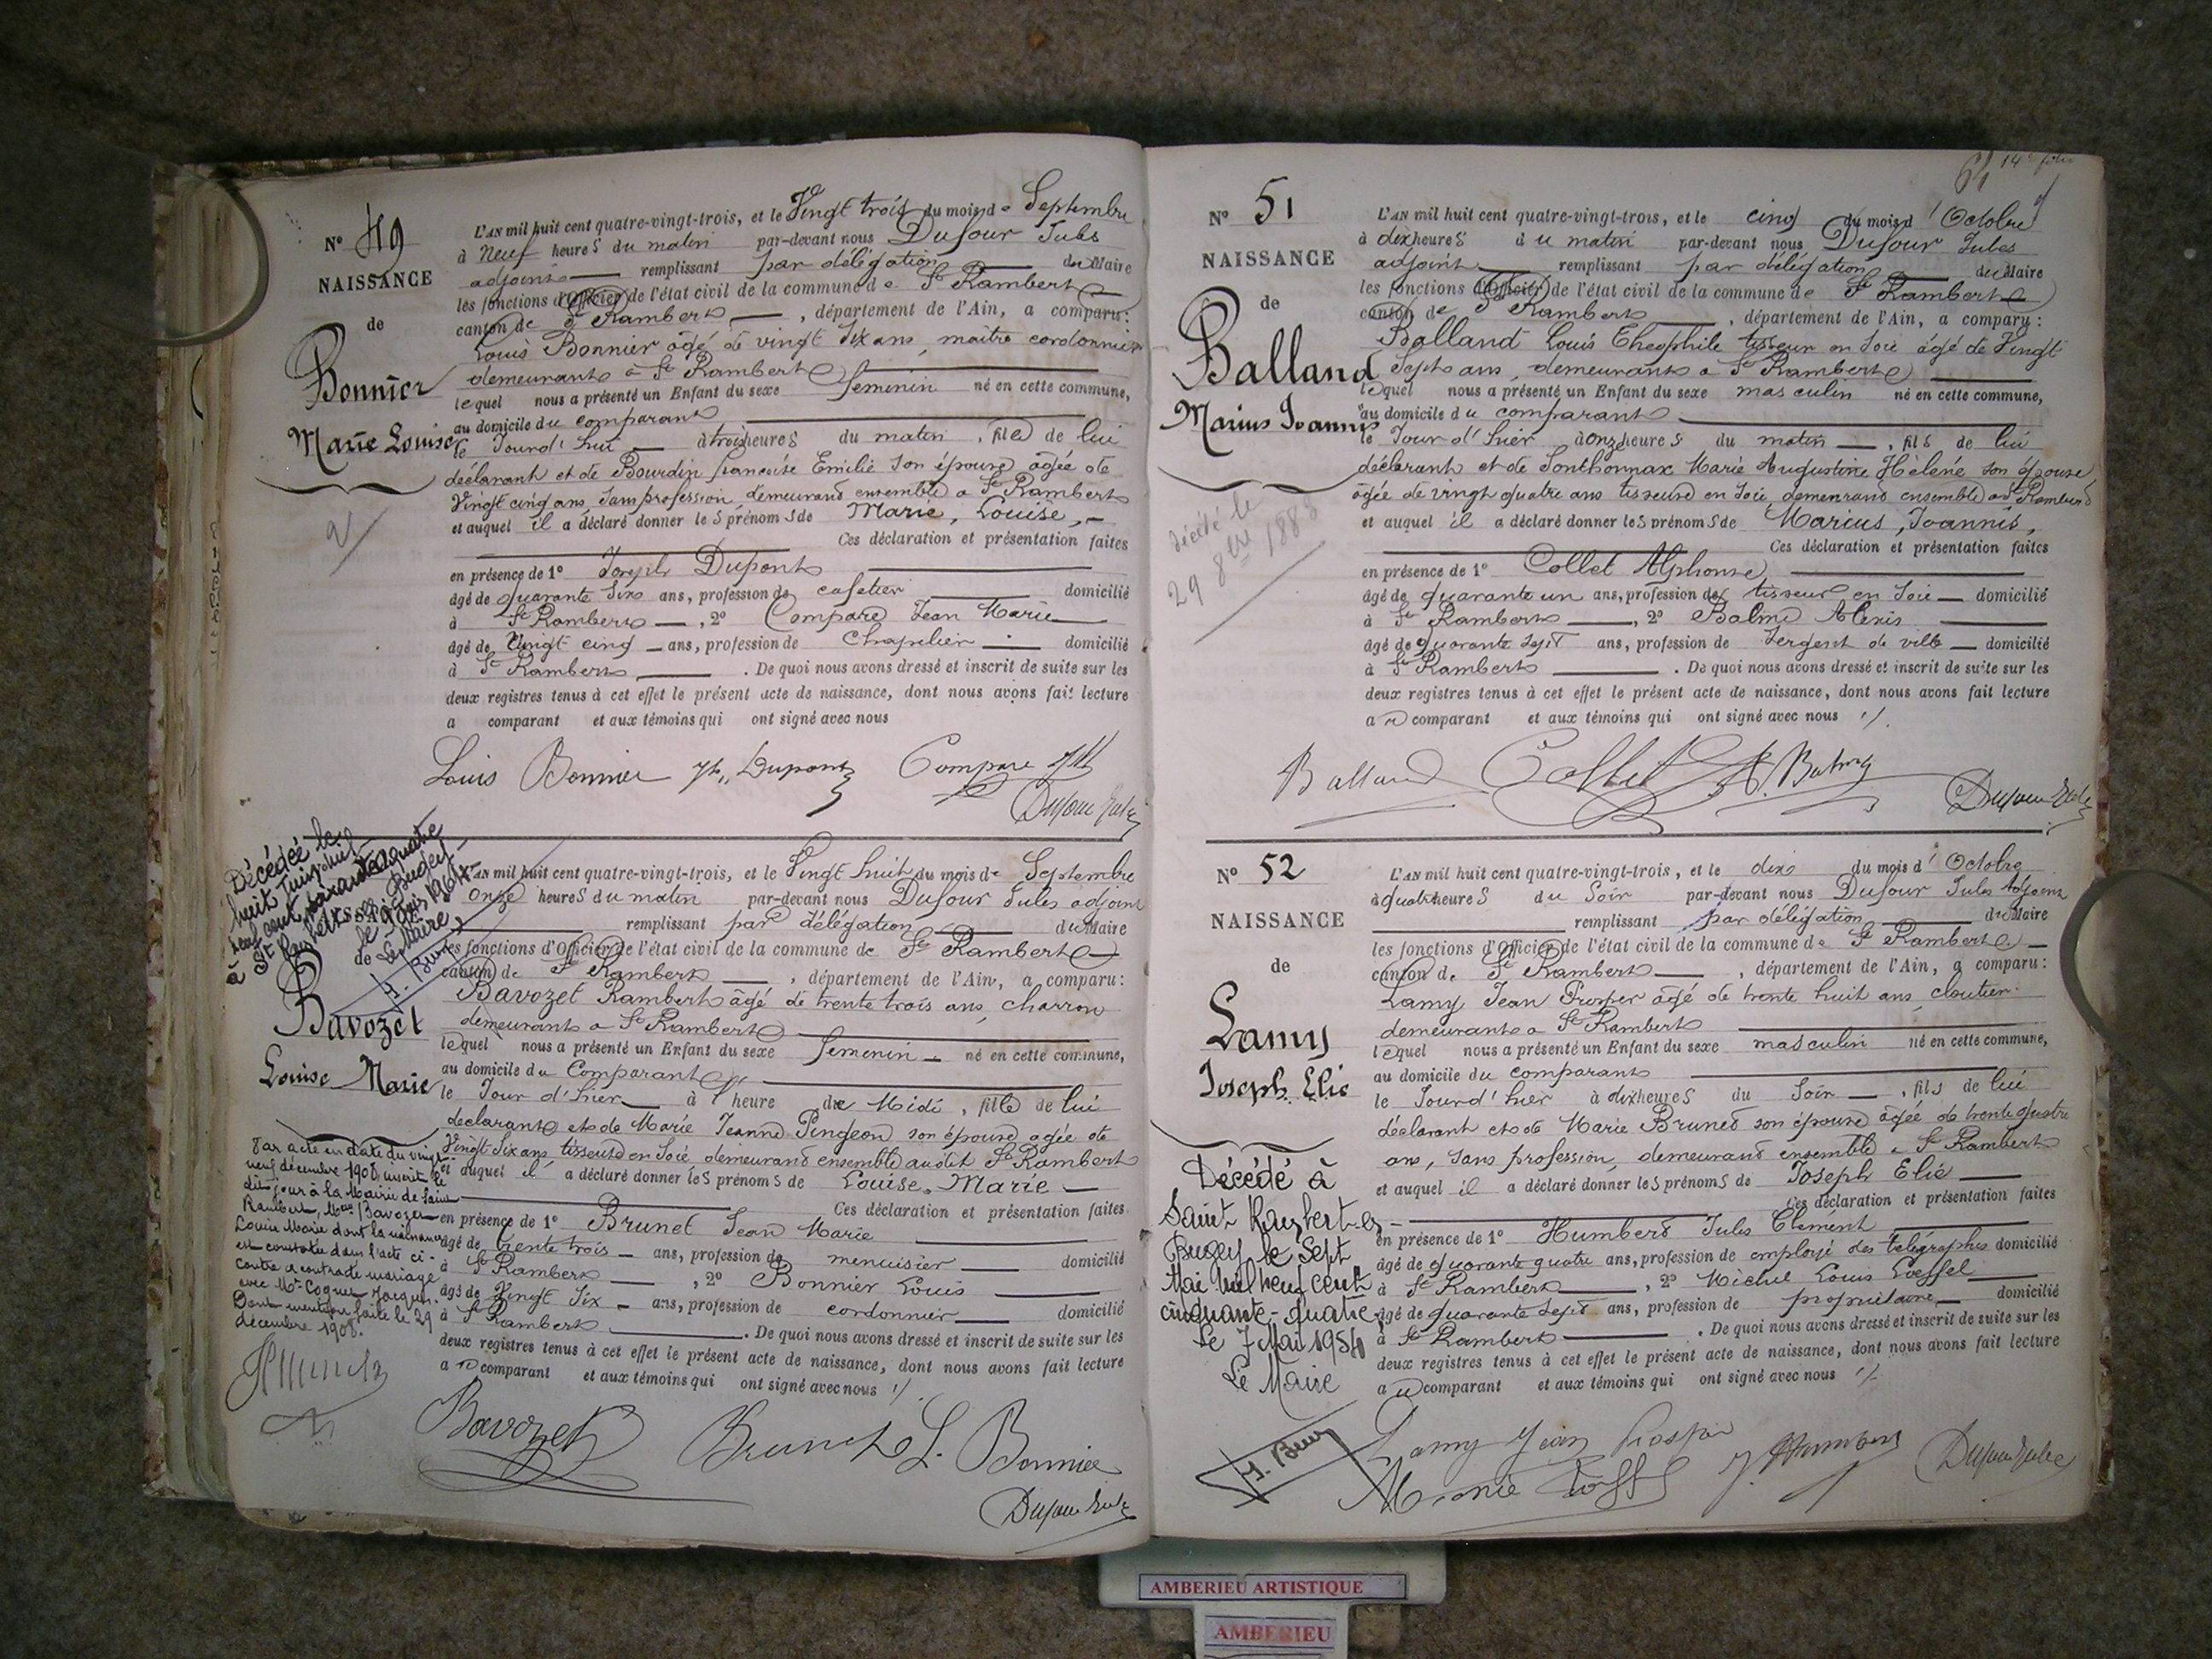 N° 49
NAISSANCE
de
Bonnier
Marie Louise
L'AN mil huit cent quatre-vingt-trois, et le Vingt trois du mois de Septembre
à Neuf heures du matin par-devant nous Dufour Jules
adjoint remplissant par délégation du Maire
les fonctions d'Officier de l'état civil de la commune de St Rambert
canton de St Rambert, département de l'Ain, a comparu:
Louis Bonnier âgé de vingt six ans, maître cordonnier
demeurant à St Rambert
lequel nous a présenté un Enfant du sexe feminin né en cette commune,
au domicile du comparant
le Jourd'hui à trois heures du matin, fille de lui
déclarant et de Bourdin françoise Emilie son épouse âgée de
Vingt cinq ans, sans profession, demeurant ensemble a St Rambert
et auquel il a déclaré donner les prénoms de Marie, Louise,
Ces déclaration et présentation faites
en présence de 1° Joseph Dupont
âgé de quarante six ans, profession de cafetier domicilié
à St Rambert, 2° Compare Jean Marie
âgé de Vingt cinq ans, profession de Chapelier domicilié
à St Rambert. De quoi nous avons dressé et inscrit de suite sur les
deux registres tenus à cet effet le présent acte de naissance, dont nous avons fait lecture
a comparant et aux témoins qui ont signé avec nous
Louis Bonnier Jh Dupont Compare JM
Dufour Jules
Décédée le
huit Juin mil
neuf cent soixante quatre
à St Rambert en Bugey
le 9 Juin 1964
Le Maire
NAISSANCE
de
Bavozet
Louise Marie
L'AN mil huit cent quatre-vingt-trois, et le Vingt huit du mois de Septembre
Onze heures du matin par-devant nous Dufour Jules adjoint
remplissant par délégation du Maire
les fonctions d'Officier de l'état civil de la commune de St Rambert
canton de St Rambert, département de l'Ain, a comparu:
Bavozet Rambert âgé de trente trois ans, charron
demeurant a St Rambert
lequel nous a présenté un Enfant du sexe femenin né en cette commune,
au domicile du Comparant
le Jour d'hier à 1 heure de Midi, fille de lui
declarant et de Marie Jeanne Pingeon son épouse agée de
Vingt six ans tisseuse en Soie demeurant ensemble audit St Rambert
et auquel il a déclaré donner les prénoms de Louise, Marie
Ces déclaration et présentation faites
en présence de 1° Brunet Jean Marie
âgé de trente trois ans, profession de menuisier domicilié
à St Rambert, 2° Bonnier Louis
âgé de Vingt Six ans, profession de cordonnier domicilié
à St Rambert. De quoi nous avons dressé et inscrit de suite sur les
deux registres tenus à cet effet le présent acte de naissance, dont nous avons fait lecture
au comparant et aux témoins qui ont signé avec nous
Par acte en date du vingt
neuf décembre 1908, inscrit le
dit jour à la Mairie de Saint
Rambert, Melle Bavozet
Louise Marie dont la naissance
est constatée dans l'acte ci-
contre a contracté mariage
avec Mr Coquet Jacques.
Dont mention faite le 29
décembre 1908.
Bavozet Brunet L. Bonnier
Dufour Jules
64 14e folio
N° 51
NAISSANCE
de
Balland
Marius Joannis
décédé le
29 8bre 1883
L'AN mil huit cent quatre-vingt-trois, et le cinq du mois d'Octobre
à dix heures du matin par-devant nous Dufour Jules
adjoint remplissant par délégation du Maire
les fonctions d'Officier de l'état civil de la commune de St Rambert
canton de St Rambert, département de l'Ain, a comparu:
Balland Louis Theophile tisseur en soie âgé de Vingt
Sept ans, demeurant a St Rambert
lequel nous a présenté un Enfant du sexe masculin né en cette commune,
au domicile du comparant
le Jour d'hier à onze heures du matin, fils de lui
déclarant et de Sonthonnax Marie Augustine Hèléne son épouse
âgée de vingt quatre ans tisseuse en Soie demeurant ensemble a St Rambert
et auquel il a déclaré donner les prénoms de Marius, Joannis,
Ces déclaration et présentation faites
en présence de 1° Collet Alphonse
âgé de quarante un ans, profession de tisseur en Soie domicilié
à St Rambert, 2° Balme Alexis
âgé de quarante sept ans, profession de Sergent de ville domicilié
à St Rambert. De quoi nous avons dressé et inscrit de suite sur les
deux registres tenus à cet effet le présent acte de naissance, dont nous avons fait lecture
au comparant et aux témoins qui ont signé avec nous
Balland Collet A. Balme
Dufour Jules
N° 52
NAISSANCE
de
Lamy
Joseph Elie
L'AN mil huit cent quatre-vingt-trois, et le dix du mois d'Octobre
à quatre heures du Soir par-devant nous Dufour Jules Adjoint
remplissant par délégation du Maire
les fonctions d'Officier de l'état civil de la commune de St Rambert
canton de St Rambert, département de l'Ain, a comparu:
Lamy Jean Prosper âgé de trente huit ans cloutier
demeurant a St Rambert
lequel nous a présenté un Enfant du sexe masculin né en cette commune,
au domicile du comparant
le Jourd'hier à dix heures du Soir, fils de lui
déclarant et de Marie Brunet son épouse âgée de trente quatre
ans, sans profession, demeurant ensemble a St Rambert
et auquel il a déclaré donner les prénoms de Joseph Elie
Ces déclaration et présentation faites
en présence de 1° Humbert Jules Clement
âgé de quarante quatre ans, profession de employé des télégraphes domicilié
à St Rambert, 2° Michel Louis Loeffel
âgé de quarante sept ans, profession de propriétaire domicilié
à St Rambert. De quoi nous avons dressé et inscrit de suite sur les
deux registres tenus à cet effet le présent acte de naissance, dont nous avons fait lecture
au comparant et aux témoins qui ont signé avec nous
Décédé à
Saint Rambert-en-
Bugey le Sept
Mai mil neuf cent
cinquante-quatre
Le 7 Mai 1954
Le Maire
Lamy Jean Prosper J. Humbert Dufour Jules
AMBERIEU ARTISTIQUE
AMBERIEU